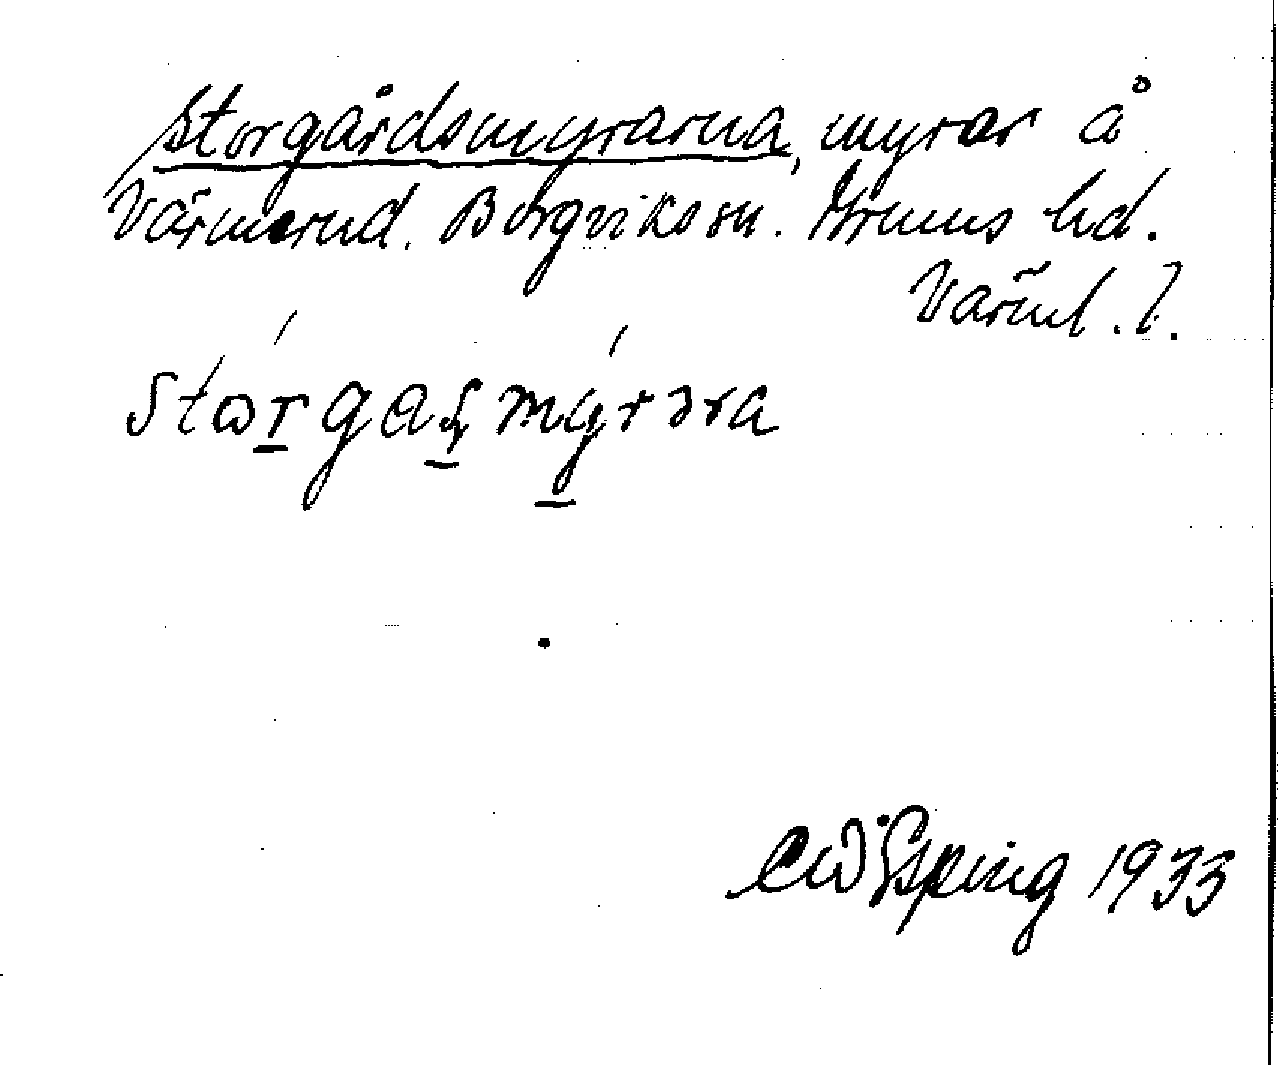 Storgårdsmyrarna, myrar å
Värmerud. Borgviks sn. Grums hd.
Värml. l.
Storgaʂmyrɜra
1933